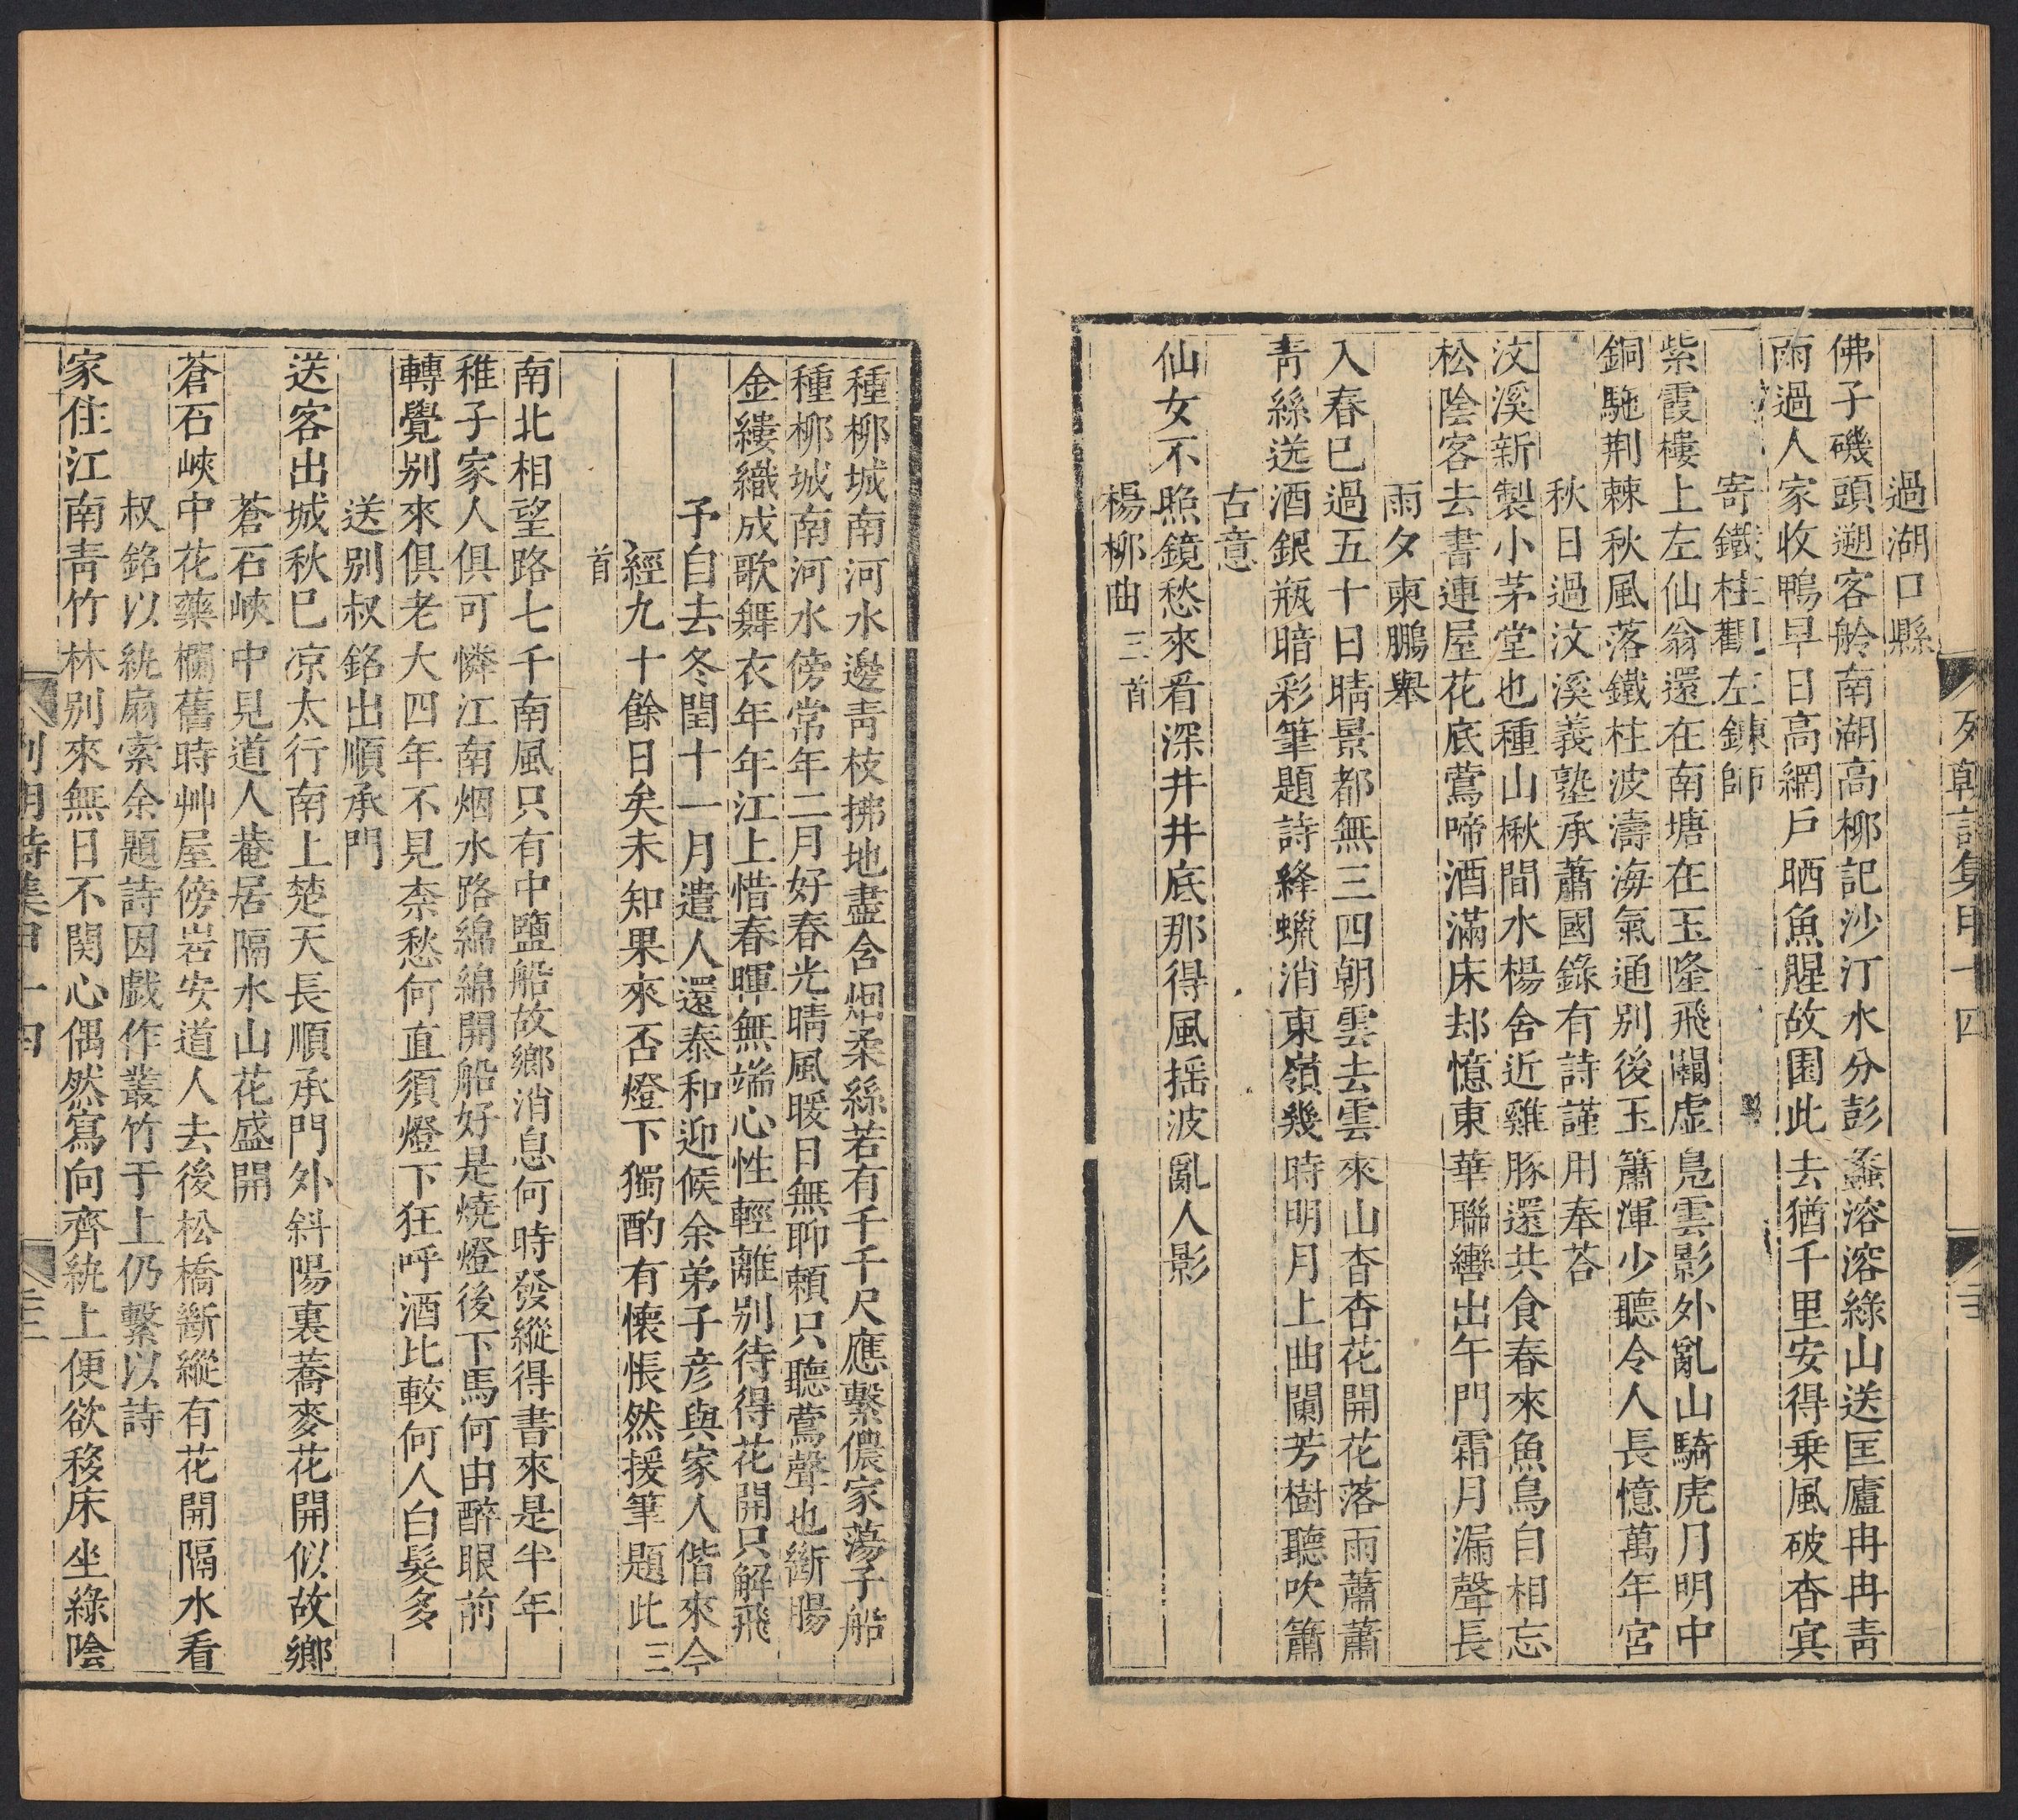 過湖口縣
佛子磯頭遡客舲南湖高柳記沙汀水分彭蠡溶溶綠山送匡廬冉冉青
雨過人家收鴨早日高網戶晒魚腥故園此去猶千里安得乗風破杳冥
寄鐵柱觀左鍊師
紫霞樓上左仙翁還在南塘在玉隆飛閣虛鳬雲影外亂山騎虎月明中
銅駞荆棘秋風落鐵柱波濤海氣通别後玉簫渾少聽令人長憶萬年宮
秋日過汶溪義塾承蕭國錄有詩謹用奉荅
汶溪新製小茅堂也種山楸間水楊舍近雞豚還共食春來魚鳥自相忘
松陰客去書連屋花底鶯啼酒滿床却憶東華聯轡出午門霜月漏聲長
雨夕柬鵬舉
入春巳過五十日晴景都無三四朝雲去雲來山杳杳花開花落雨蕭蕭
青絲送酒銀瓶暗彩筆題詩絳蠟消東嶺幾時明月上曲闌芳樹聽吹簫
古意
仙女不照鏡愁來看深井井底那得風揺波亂人影
楊柳曲三首
種柳城南河水邊青枝拂地盡含烟柔絲若有千千尺應繫儂家蕩子船
種柳城南河水傍常年二月好春光晴風暖日無聊頼只聽鶯聲也斷腸
金縷織成歌舞衣年年江上惜春暉無端心性輕離别待得花開只解飛
予自去冬閏十一月遣人還泰和迎候余弟子彦與家人偕來今
經九十餘日矣未知果來否燈下獨酌有懷悵然援筆題此三
首
南北相望路七千南風只有中鹽船故鄉消息何時發縱得書來是半年
稚子家人俱可憐江南烟水路綿綿開船好是燒燈後下馬何由醉眼前
轉覺别來俱老大四年不見柰愁何直須燈下狂呼酒比較何人白髮多
送别叔銘出順承門
送客出城秋巳凉太行南上楚天長順承門外斜陽裏蕎麥花開似故鄉
蒼石峽中見道人菴居隔水山花盛開
蒼石峽中花藥欄舊時艸屋傍岩安道人去後松橋斷縱有花開隔水看
叔銘以紈扇索余題詩因戯作叢竹于上仍繫以詩
家住江南青竹林别來無日不関心偶然寫向齊紈上便欲移床坐綠陰